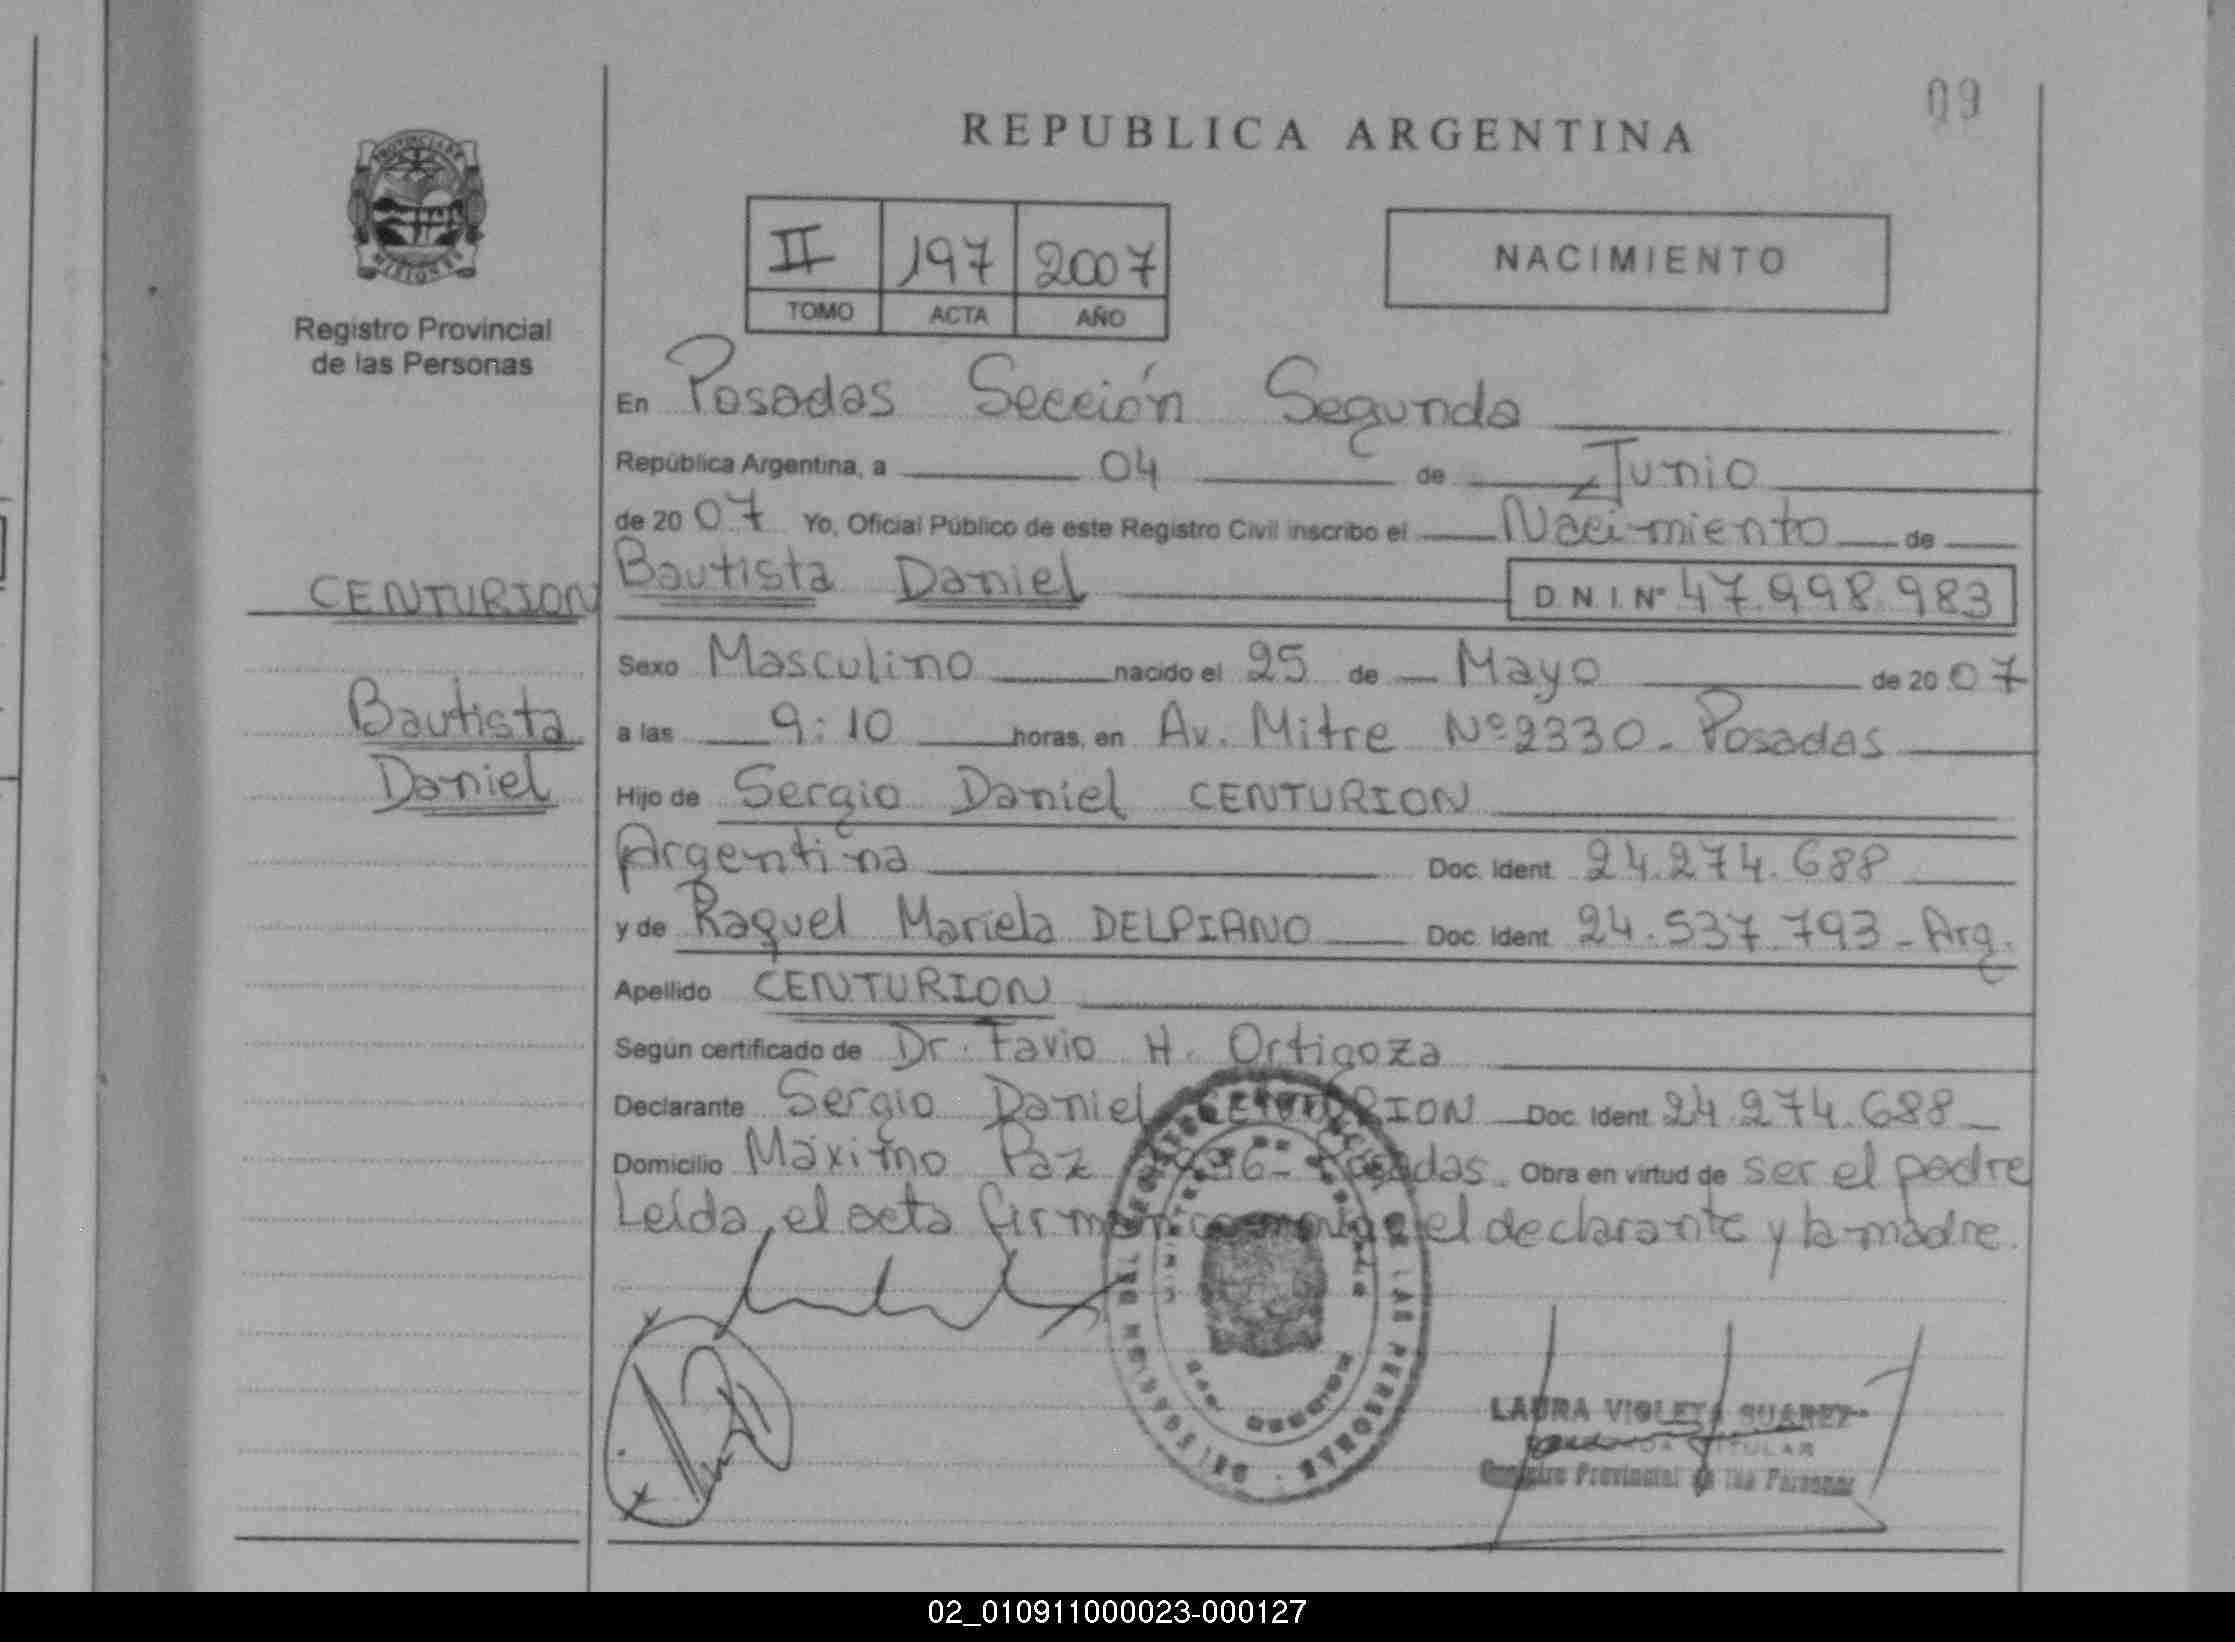 09
REPUBLICA ARGENTINA
PROVINCIA DE
MISIONES
Registro Provincial
de las Personas
II 197 2007
TOMO ACTA AÑO
NACIMIENTO
En Posadas Sección Segunda
República Argentina, a 04 de Junio
de 2007 Yo, Oficial Público de este Registro Civil inscribo el Nacimiento de
CENTURION
Bautista
Daniel
Bautista Daniel D.N.I. Nº 47.998.983
Sexo Masculino nacido el 25 de Mayo de 2007
a las 9:10 horas, en Av. Mitre Nº 2330 - Posadas
Hijo de Sergio Daniel CENTURION
Argentina Doc. Ident. 24.274.688
y de Raquel Mariela DELPIANO Doc. Ident. 24.537.793 - Arg.
Apellido CENTURION
Según certificado de Dr. Favio H. Ortigoza
Declarante Sergio Daniel CENTURION Doc. Ident. 24.274.688
Domicilio Máximo Paz Posadas. Obra en virtud de ser el padre
Leída, el acta firman conmigo el declarante y la madre.
LAURA VIOLETA SUAREZ
TITULAR
Registro Provincial de las Personas
02_010911000023-000127